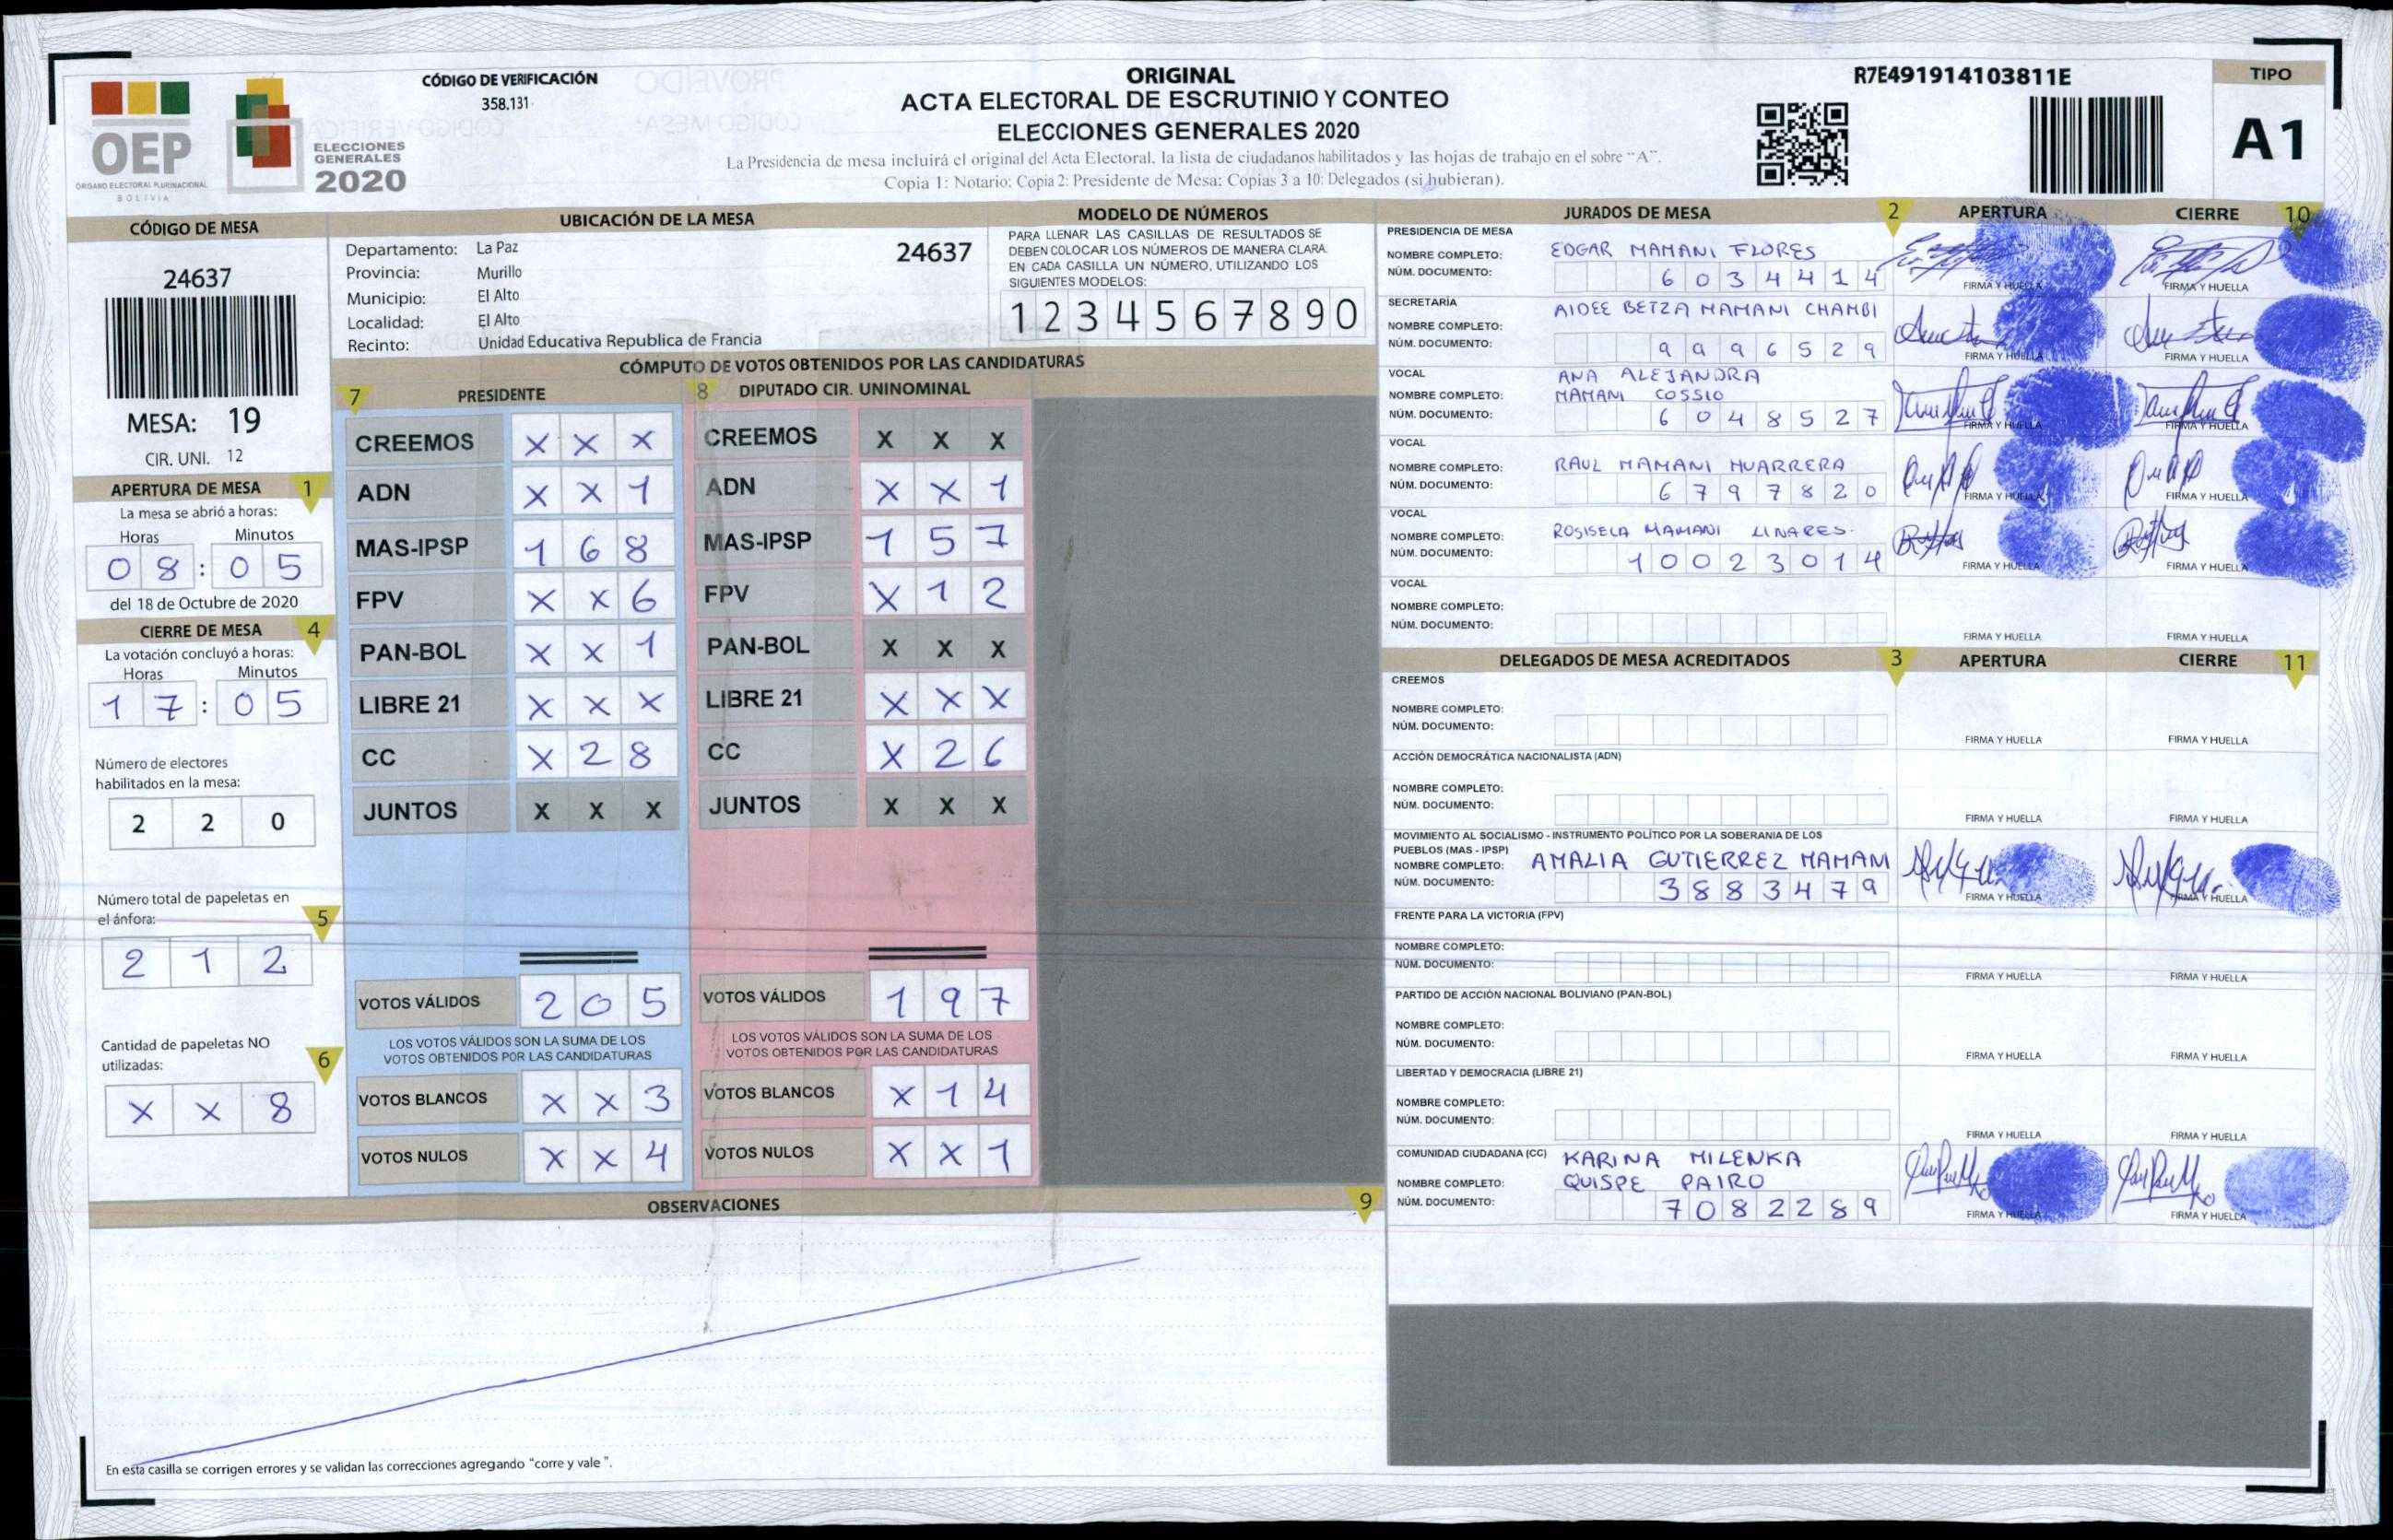 CÓDIGO DE VERIFICACIÓN
358.131
OEP
ÓRGANO ELECTORAL PLURINACIONAL
BOLIVIA
ELECCIONES
GENERALES
2020
ORIGINAL
ACTA ELECTORAL DE ESCRUTINIO Y CONTEO
ELECCIONES GENERALES 2020
La Presidencia de mesa incluirá el original del Acta Electoral, la lista de ciudadanos habilitados y las hojas de trabajo en el sobre "A".
Copia 1: Notario; Copia 2: Presidente de Mesa; Copias 3 a 10: Delegados (si hubieran).
R7E491914103811E
TIPO
A1
CÓDIGO DE MESA
24637
MESA: 19
CIR. UNI. 12
APERTURA DE MESA 1
La mesa se abrió a horas:
Horas Minutos
08:05
del 18 de Octubre de 2020
CIERRE DE MESA 4
La votación concluyó a horas:
Horas Minutos
17:05
Número de electores
habilitados en la mesa:
2 2 0
Número total de papeletas en
el ánfora: 5
2 1 2
Cantidad de papeletas NO
utilizadas: 6
X X 8
UBICACIÓN DE LA MESA
Departamento: La Paz
24637
Provincia: Murillo
Municipio: El Alto
Localidad: El Alto
Recinto: Unidad Educativa Republica de Francia
MODELO DE NÚMEROS
PARA LLENAR LAS CASILLAS DE RESULTADOS SE
DEBEN COLOCAR LOS NÚMEROS DE MANERA CLARA.
EN CADA CASILLA UN NÚMERO, UTILIZANDO LOS
SIGUIENTES MODELOS:
1 2 3 4 5 6 7 8 9 0
CÓMPUTO DE VOTOS OBTENIDOS POR LAS CANDIDATURAS
7 PRESIDENTE
CREEMOS X X X
ADN X X 1
MAS-IPSP 1 6 8
FPV X X 6
PAN-BOL X X 1
LIBRE 21 X X X
CC X 2 8
JUNTOS X X X
VOTOS VÁLIDOS 2 0 5
LOS VOTOS VÁLIDOS SON LA SUMA DE LOS
VOTOS OBTENIDOS POR LAS CANDIDATURAS
VOTOS BLANCOS X X 3
VOTOS NULOS X X 4
8 DIPUTADO CIR. UNINOMINAL
CREEMOS X X X
ADN X X 1
MAS-IPSP 1 5 7
FPV X 1 2
PAN-BOL X X X
LIBRE 21 X X X
CC X 2 6
JUNTOS X X X
VOTOS VÁLIDOS 1 9 7
LOS VOTOS VÁLIDOS SON LA SUMA DE LOS
VOTOS OBTENIDOS POR LAS CANDIDATURAS
VOTOS BLANCOS X 1 4
VOTOS NULOS X X 1
OBSERVACIONES 9
En esta casilla se corrigen errores y se validan las correcciones agregando "corre y vale ".
JURADOS DE MESA 2 APERTURA CIERRE 10
PRESIDENCIA DE MESA
NOMBRE COMPLETO: EDGAR MAMANI FLORES
NÚM. DOCUMENTO: 6034414
FIRMA Y HUELLA FIRMA Y HUELLA
SECRETARÍA
NOMBRE COMPLETO: AIDEE BETZA MAMANI CHAMBI
NÚM. DOCUMENTO: 9996529
FIRMA Y HUELLA FIRMA Y HUELLA
VOCAL
NOMBRE COMPLETO: ANA ALEJANDRA
MAMANI COSSIO
NÚM. DOCUMENTO: 6048527
FIRMA Y HUELLA FIRMA Y HUELLA
VOCAL
NOMBRE COMPLETO: RAUL MAMANI HUARRERA
NÚM. DOCUMENTO: 6797820
FIRMA Y HUELLA FIRMA Y HUELLA
VOCAL
NOMBRE COMPLETO: ROSISELA MAMANI LINARES
NÚM. DOCUMENTO: 10023014
FIRMA Y HUELLA FIRMA Y HUELLA
VOCAL
NOMBRE COMPLETO:
NÚM. DOCUMENTO:
FIRMA Y HUELLA FIRMA Y HUELLA
DELEGADOS DE MESA ACREDITADOS 3 APERTURA CIERRE 11
CREEMOS
NOMBRE COMPLETO:
NÚM. DOCUMENTO:
FIRMA Y HUELLA FIRMA Y HUELLA
ACCIÓN DEMOCRÁTICA NACIONALISTA (ADN)
NOMBRE COMPLETO:
NÚM. DOCUMENTO:
FIRMA Y HUELLA FIRMA Y HUELLA
MOVIMIENTO AL SOCIALISMO - INSTRUMENTO POLÍTICO POR LA SOBERANIA DE LOS
PUEBLOS (MAS - IPSP)
NOMBRE COMPLETO: AMALIA GUTIERREZ MAMANI
NÚM. DOCUMENTO: 3883479
FIRMA Y HUELLA FIRMA Y HUELLA
FRENTE PARA LA VICTORIA (FPV)
NOMBRE COMPLETO:
NÚM. DOCUMENTO:
FIRMA Y HUELLA FIRMA Y HUELLA
PARTIDO DE ACCIÓN NACIONAL BOLIVIANO (PAN-BOL)
NOMBRE COMPLETO:
NÚM. DOCUMENTO:
FIRMA Y HUELLA FIRMA Y HUELLA
LIBERTAD Y DEMOCRACIA (LIBRE 21)
NOMBRE COMPLETO:
NÚM. DOCUMENTO:
FIRMA Y HUELLA FIRMA Y HUELLA
COMUNIDAD CIUDADANA (CC)
NOMBRE COMPLETO: KARINA MILENKA
QUISPE PAIRO
NÚM. DOCUMENTO: 7082289
FIRMA Y HUELLA FIRMA Y HUELLA